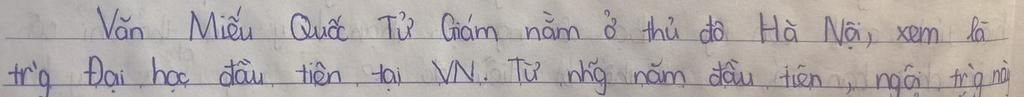 Văn Miếu Quốc Tử Giám nằm ở thủ đô Hà Nội, xem là
tr'g Đại học đầu tiên tại VN. Từ nh~g năm đầu tiên, ngôi tr'g này